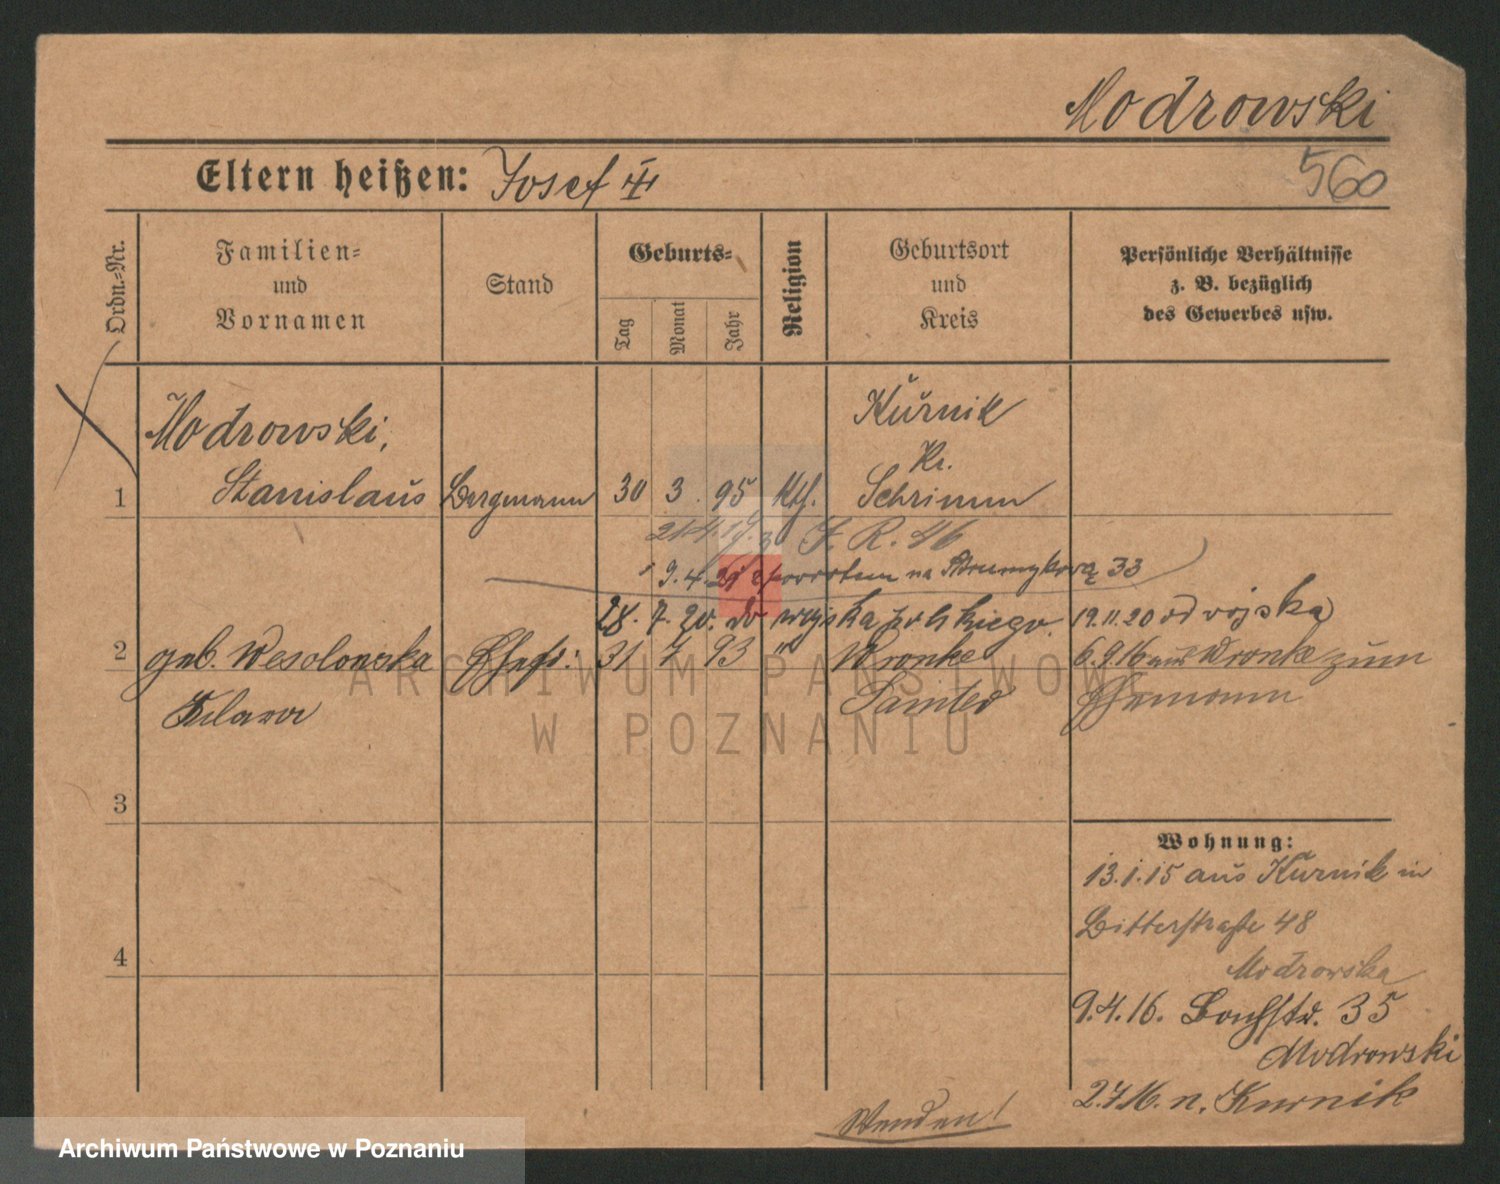 Modrowski
Eltern heißen: Josef III
560
Ordn.-Nr.
Familien-
und
Vornamen
Stand
Geburts-
Tag
Monat
Jahr
Religion
Geburtsort
und
Kreis
Persönliche Verhältnisse
z. B. bezüglich
des Gewerbes usw.
Kŭrnik
Modrowski,
Kr.
1 Stanislaŭs Bergmann 30 3. 95 Kth. Schrimm
21.4.17. I. R. 46
9.4.21 z powrotem na Strumykową 33
28. 7. 20. do wojska polskiego. 19.11.20 od vojska
2 geb. Wesolowska Ehefr: 31 7 93 " Wronke 6.9.16 aus Wronke zum
Samter Ehemann
3
Wohnung:
13.1.15 aŭs Kŭrnik in
Bitterstraße 48
4
Modrowska
9.4.16. Bachstr. 35
Modrowski
2.7.16. n. Kurnik
Wenden!
ARCHIWUM PAŃSTWOWE
W POZNANIU
Archiwum Państwowe w Poznaniu